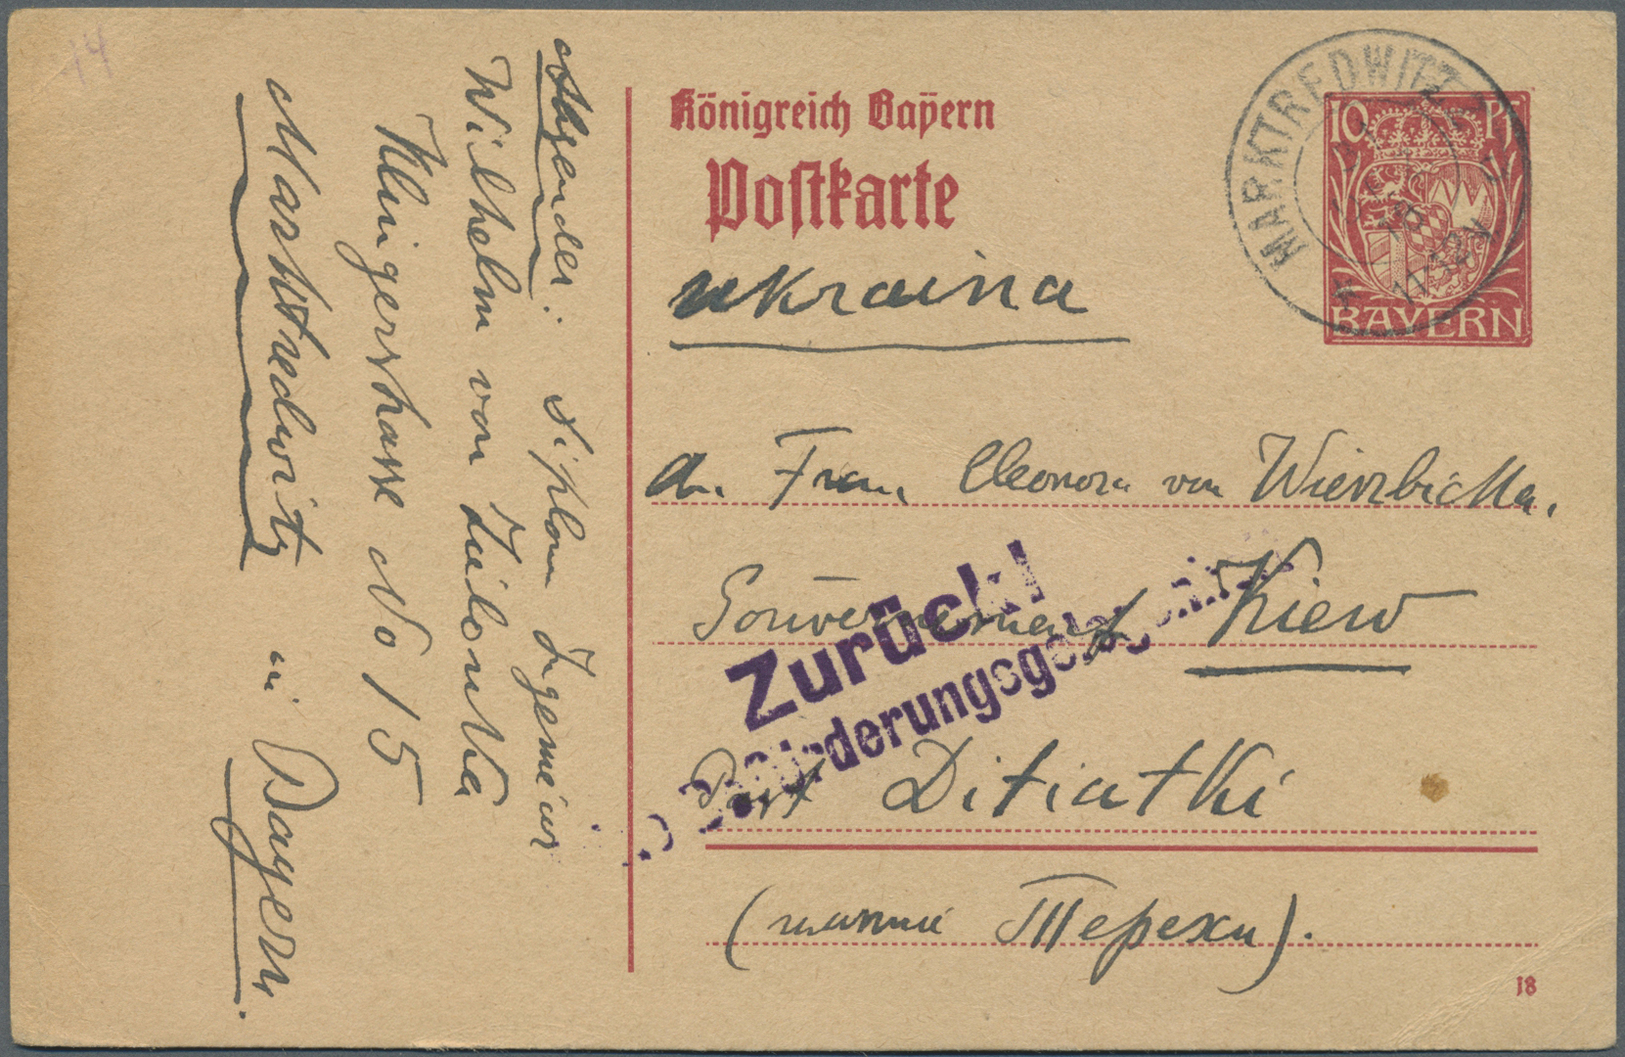 Absender: Diplom Igenieur
Wilhelm von Zielonka
Klingerstrasse No 15
Marktredwitz in Bayern.
Königreich Bayern
Postkarte
10 Pf
BAYERN
MARKTREDWITZ
18
ukraina
An Frau Eleonora von Wierzbicka,
Gouvernement Kiew
Zurück!
Beförderungsgelegenheit
Post Ditiatki
(имѣніе Терехи).
18
14